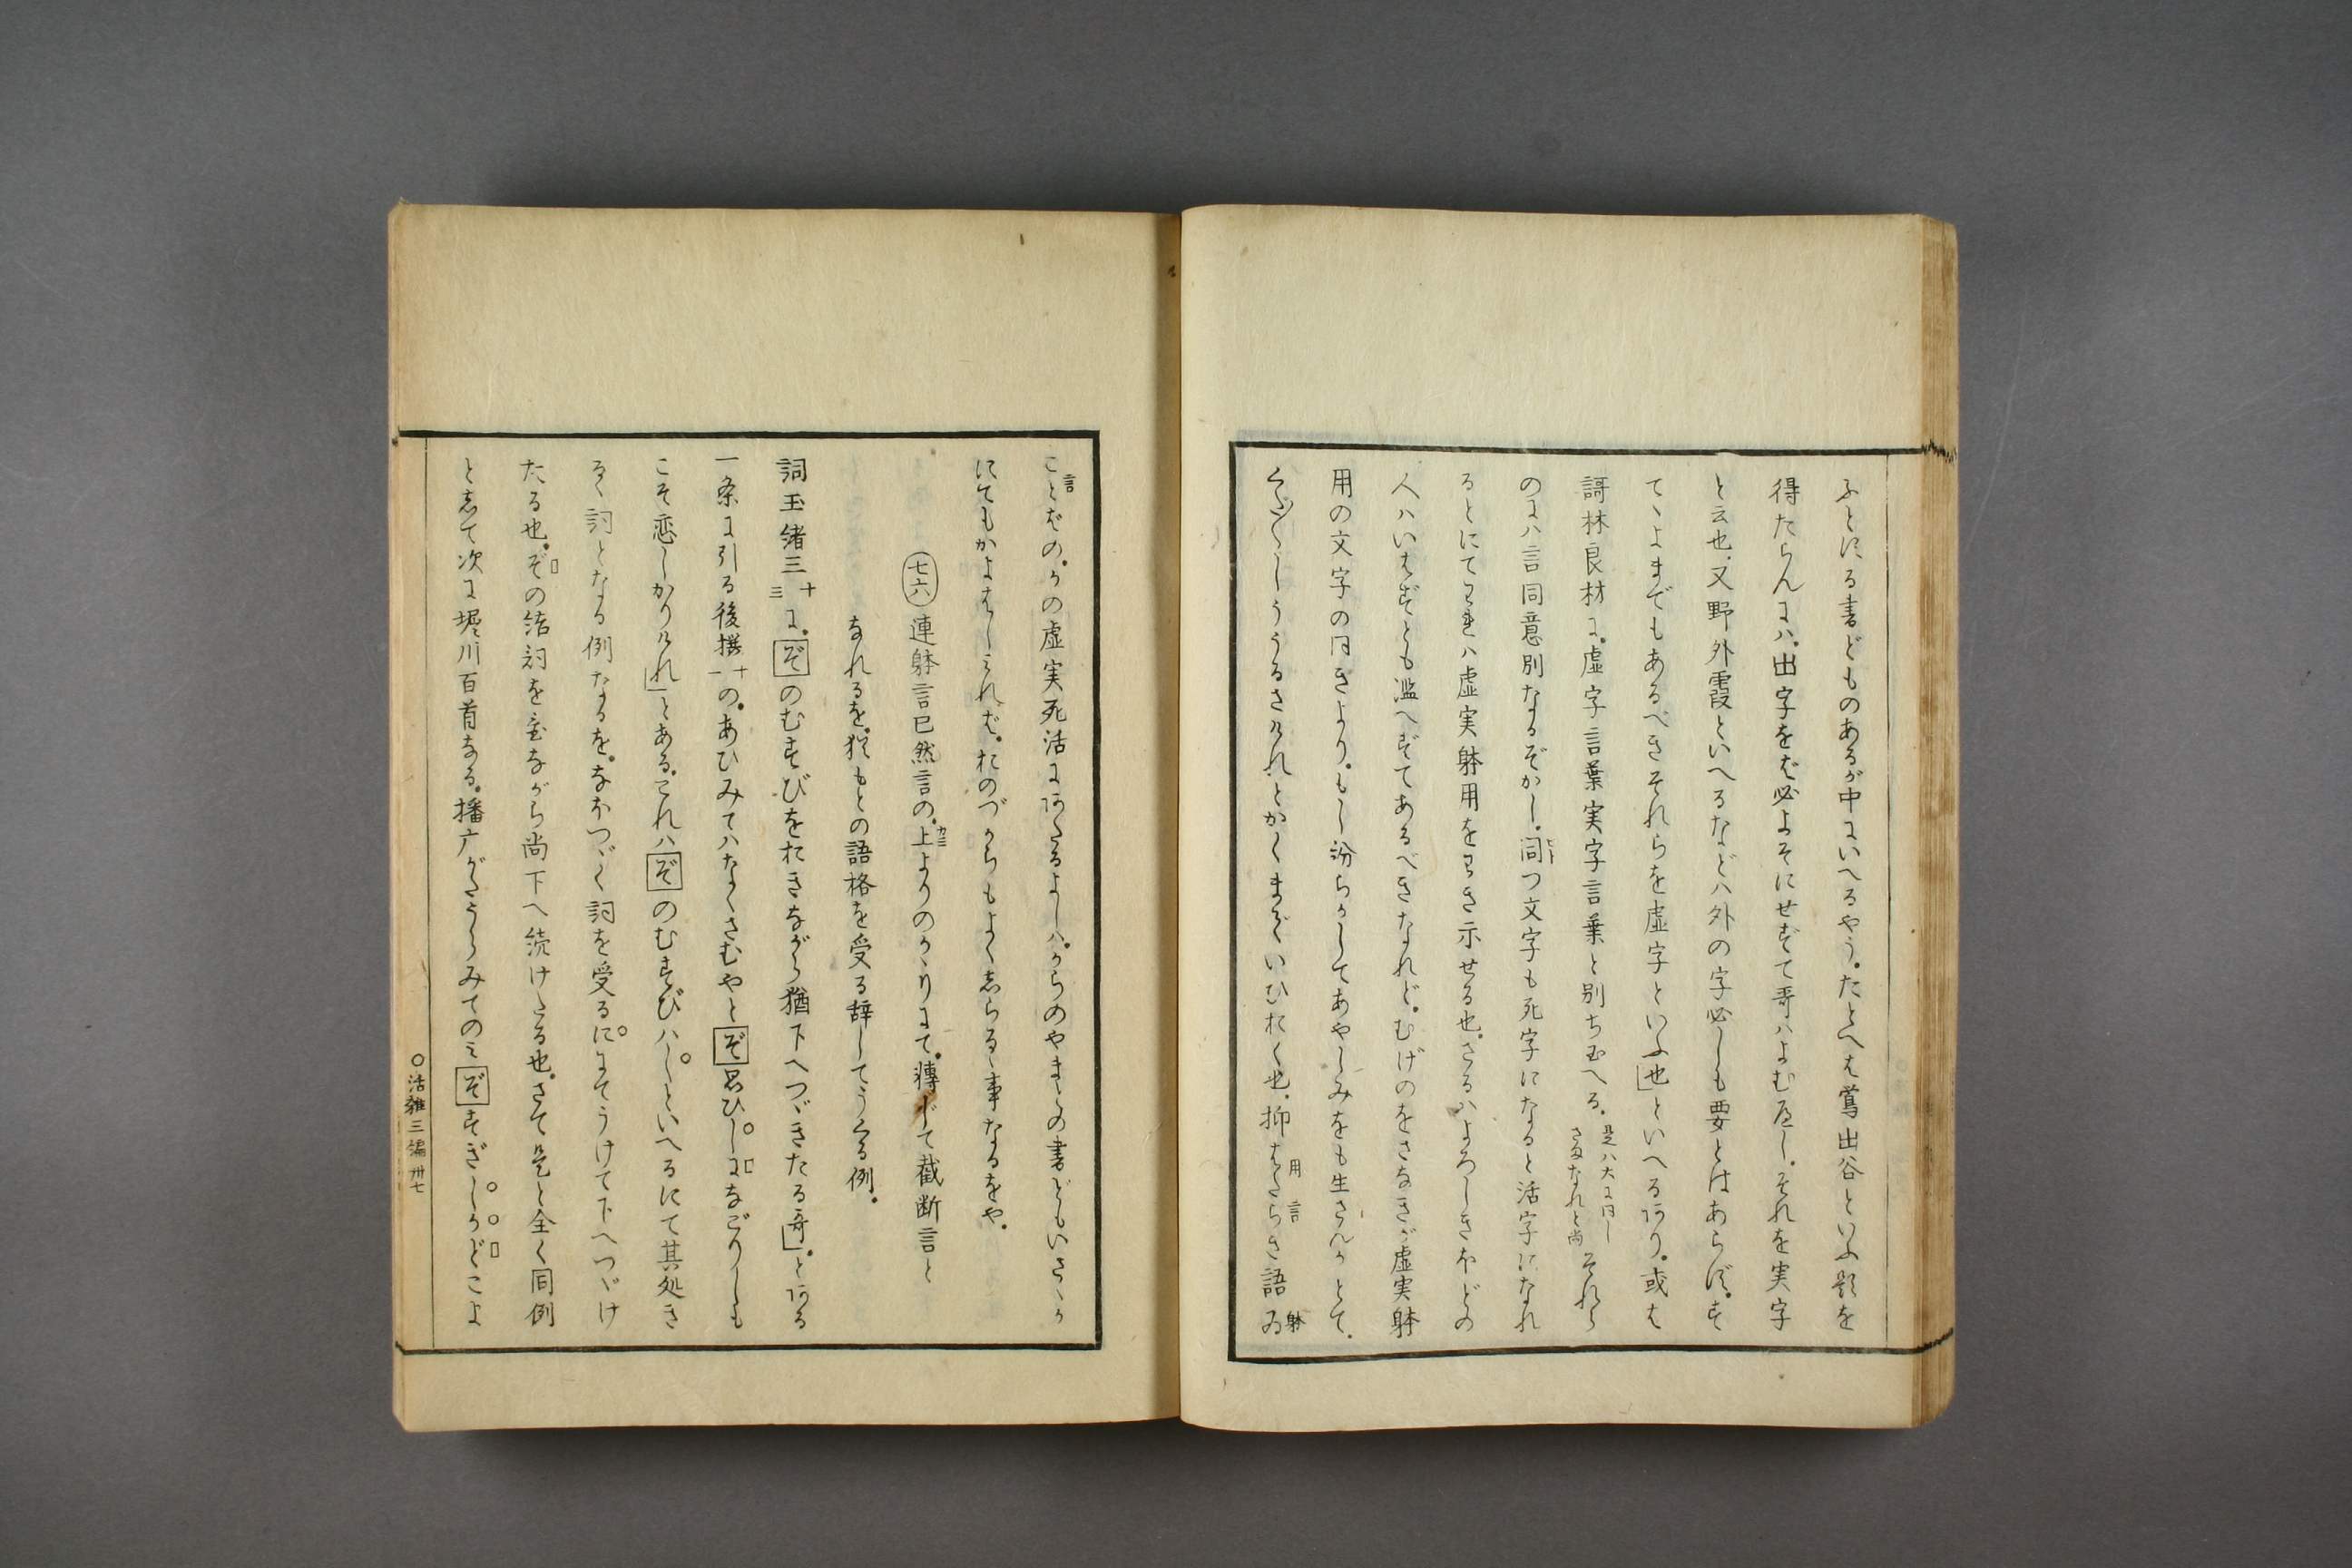 ふとにる書どものあるが中にいへるやう。たとへば鶯出谷といふ題を
得たらんにハ。出字をば必よそにせずて哥ハよむ尽し。それを実字
と云也。又野外霞といへるなどハ外の字必しも要とはあらず。す
てゝよまでもあるべきそれらを虚字といふ也」といへるあり。或は
謌林良材に。虚字言葉実字言葉と別ち玉へる。
是ハ大に同し
さまなれと尚
それら
のにハ言同意別なるぞかし。同つ文字も死字になると活字になれ
るとにてわきハ虚実躰用をわき示せる也。さるハよろしきほどの
人ハいはずとも濫へずてあるべきなれど。むげのをさなきが虚実躰
用の文字の同きより。もし汾らかしてあやしみをも生さんかとて。
くだ〲しううるさけれとかくまでいひおく也。抑はたらき語ゐ
用言
躰
言
ことばの。かの虚実死活にあたるよしハ。からのやまとの書どもいさゝか
にてもかよはしみれば。おのづからもよく志らるゝ事なるをや。
七六
連躰言已然言の。上よりのかゝりにて。轉じて截断言と
カミ
なれるを。猶もとの語格を受る辞してうくる例。
詞玉緒三
十三
に。ぞのむすびをおきながら猶下へつゞきたる哥」とある
一条に引る後撰
十一
の。あひみてハなくさむやとぞ思ひしになごりしも
こそ恋しかりけれ」とある。これハぞのむすびハしといへるにて其処き
るゝ詞となる例なるを。なほつゞく詞を受るににてうけて下へつゞけ
たる也。ぞの結詞を置ながら尚下へ続けたる也。さて是と全く同例
と志て次に堀川百首なる。播广がたうらみてのみぞすぎしかどこよ
○活雑三編 卅七